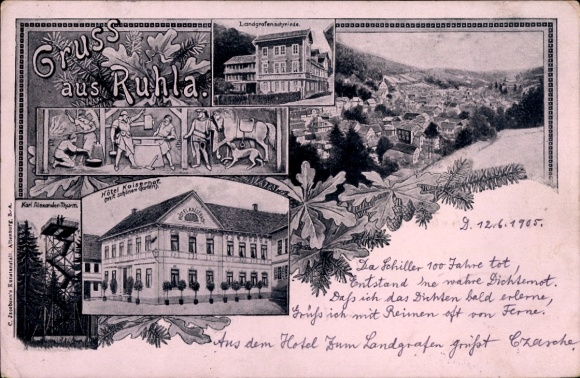 Gruss
aus Ruhla.
Landgrafenschmiede.
Hôtel Kaiserhof
mit schönem Garten.
Karl Alexander-Thurm.
D. 12.6.1905.
Da Schiller 100 Jahre tot,
Entstand 'ne wahre Dichternot.
Daß ich das Dichten bald erlerne,
Grüß ich mit Reimen oft von Ferne.
Aus dem Hotel Zum Landgrafen grüßt Czasche